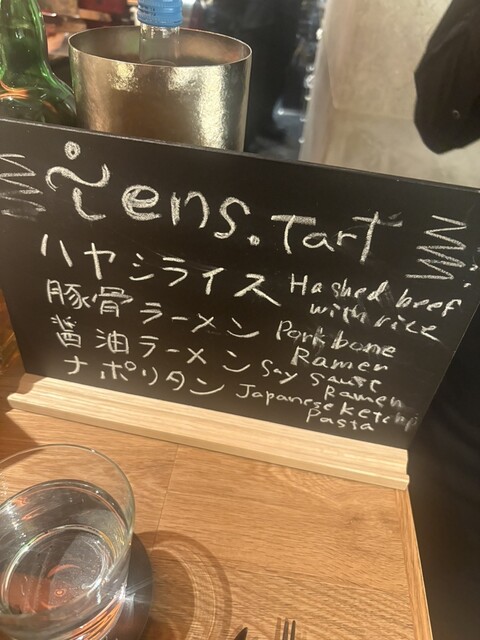 iens. Tart
ハヤシライス Hashed beef
with rice
豚骨ラーメン Pork bone
Ramen
醤油ラーメン Say Sause
Ramen
ナポリタン Japanese Ketchp
Pasta